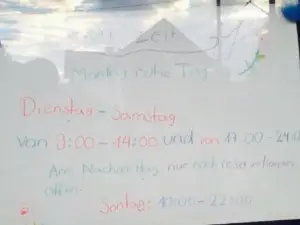 Zeit
Montag ruhe Tag
Dienstag - Samstag
von 9:00 - 14:00 und von 17.00 - 24.0
Am nur nach reservation
offen.
Sontag: 10:00 - 22:00